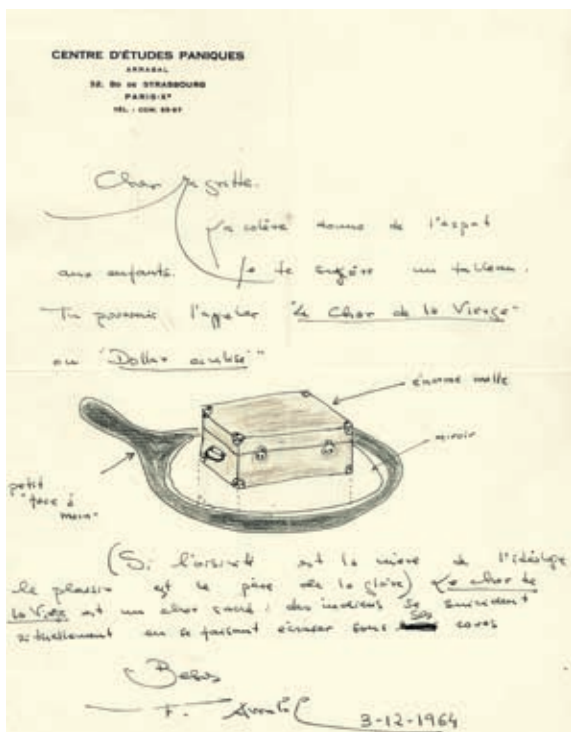 CENTRE D'ÉTUDES PANIQUES
ARRABAL
52, BD DE STRASBOURG
PARIS-Xe
TÉL. : COM.
Cher Magritte.
La colère donne de l'esprit
aux enfants. Je te suggère un tableau.
Tu pourrais l'appeler "Le Char de la Vierge"
ou "Dollar
énorme malle
miroir
petit
"face à
main"
(Si l'oisiveté est la mère de l'idéologie
le plaisir est le père de la gloire) Le char de
la Vierge est un char sacré : des indiens se suicident
rituellement en se faisant écraser sous ses roues
Besos
F. Arrabal
3-12-1964